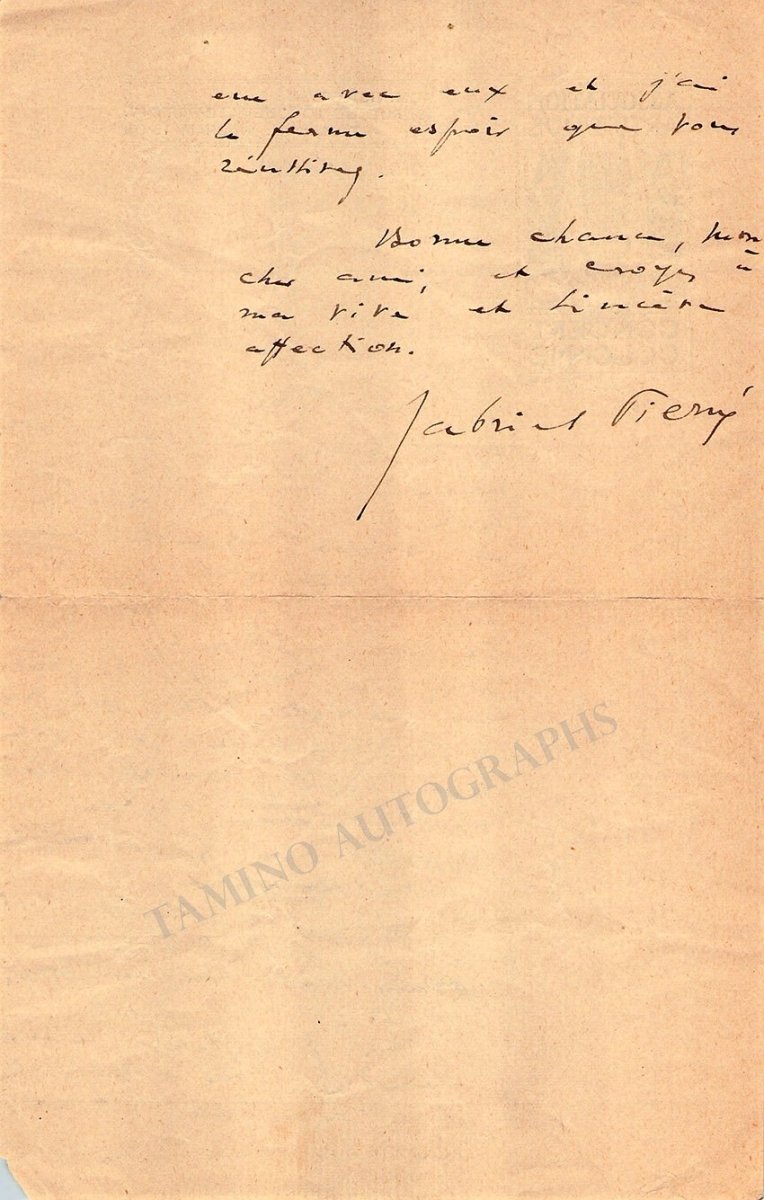 eue avec eux et j'ai
le ferme espoir que vous
réussirez.
Bonne chance, mon
cher ami, et croyez à
ma vive et sincère
affection.
Gabriel Pierné
TAMINO AUTOGRAPHS